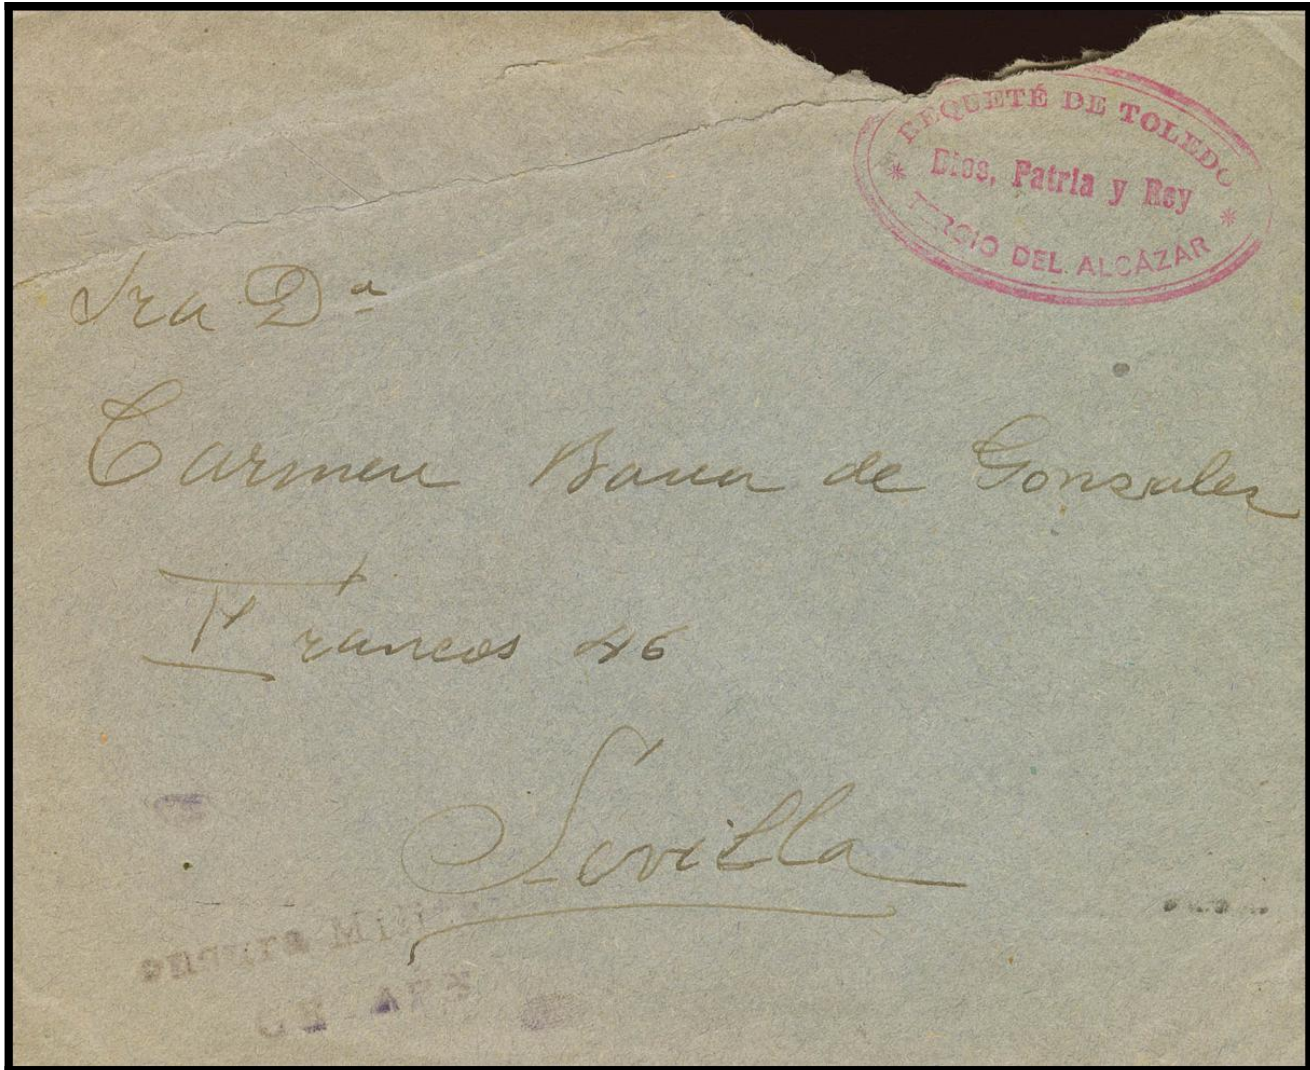 REQUETÉ DE TOLEDO
Dios, Patria y Rey
TERCIO DEL ALCÁZAR
Sra Dª
Carmen de Gonzalez
Francos 46
Sevilla